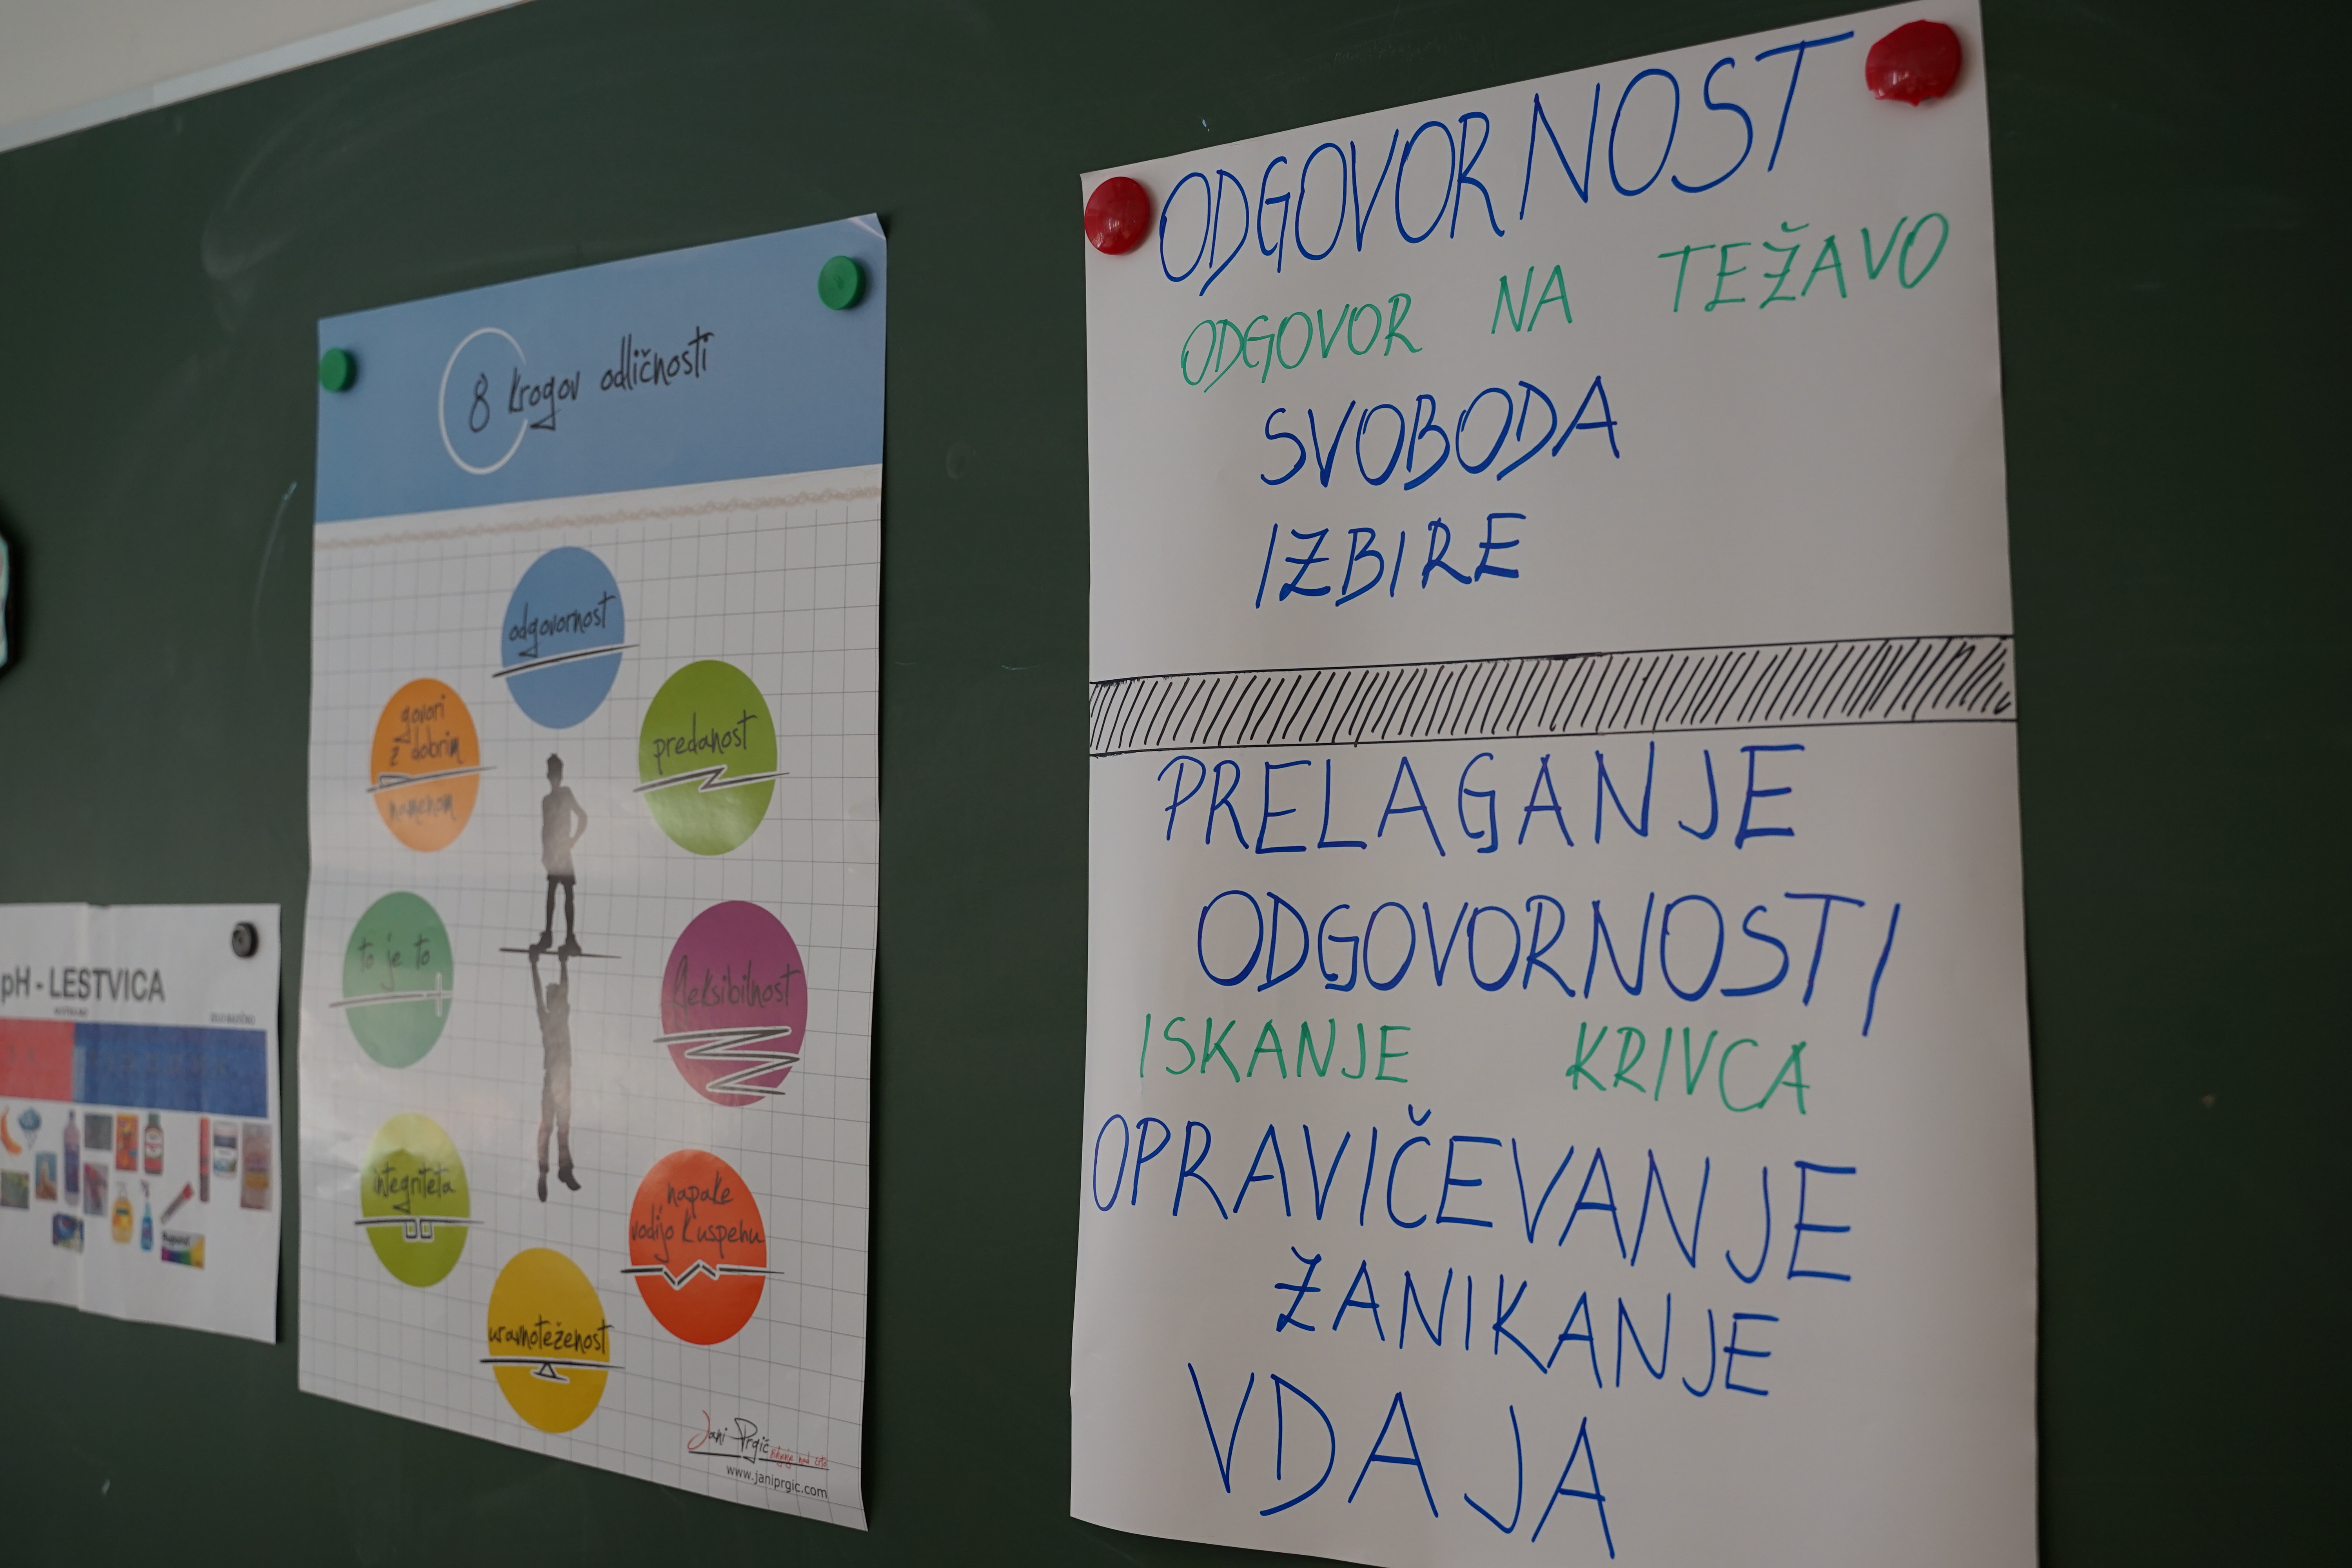 8 krogov odličnosti
odgovornost
govori
z dobrim
namenom
predanost
to je to
fleksibilnost
integriteta
napake
vodijo k uspehu
uravnoteženost
Jani Prgič
www.janiprgic.com
pH - LESTVICA
ODGOVORNOST
ODGOVOR NA TEŽAVO
SVOBODA
IZBIRE
PRELAGANJE
ODGOVORNOSTI
ISKANJE KRIVCA
OPRAVIČEVANJE
ZANIKANJE
VDAJA